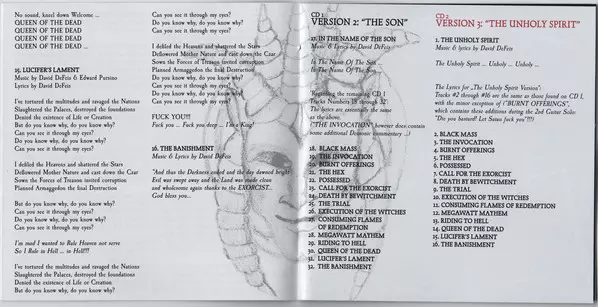 No sound, knurl down Welcome ...
QUEEN OF THE DEAD
QUEEN OF THE DEAD
QUEEN OF THE DEAD
QUEEN OF THE DEAD ...
15. LUCIFER'S LAMENT
Music by David DeFeis & Edward Pursino
Lyrics by David DeFeis
I've tortured the multitudes and ravaged the Nations
Slaughtered the Palaces, destroyed the foundations
Denied the existence of Life or Creation
But do you know why, do you know why?
Can you see it through my eyes?
Do you know why, do you know why?
Can you see it through my eyes?
I defiled the Heavens and shattered the Stars
Deflowered Mother Nature and cast down the Czar
Sown the Forces of Treason invited corruption
Planned Armaggedon the final Destruction
But do you know why, do you know why?
Can you see it through my eyes?
Do you know why, do you know why?
Can you see it through my eyes?
I'm mad I wanted to Rule Heaven not serve
So I Role in Hell ... in Hell!!!
I've tortured the multitudes and ravaged the Nations
Slaughtered the Palaces, destroyed the foundations
Denied the existence of Life or Creation
But do you know why, do you know why?
Can you see it through my eyes?
Do you know why, do you know why?
Can you see it through my eyes?
I defiled the Heavens and shattered the Stars
Deflowered Mother Nature and cast down the Czar
Sown the Forces of Treason invited corruption
Planned Armaggedon the final Destruction
But do you know why, do you know why?
Can you see it through my eyes?
Do you know why, do you know why?
Can you see it through my eyes?
FUCK YOU!!!
Fuck you ... Fuck you deep ... I'm a King!
16. THE BANISHMENT
Music & Lyrics by David DeFeis
"And thus the Darkness ended and the day dawned bright
Evil was swept away and the Land was made clean
and wholesome again thanks to the EXORCIST...
God bless you...
CD 1
VERSION 2: "THE SON"
17. IN THE NAME OF THE SON
Music & Lyrics by David DeFeis
In The Name Of The Son
In The Name Of The Son
Regarding the remaining CD 1
Tracks Numbers 18 through 32
The lyrics are essentially the same
as the above.
("THE INVOCATION" however does contain
some additional Demonic commentary ...)
18. BLACK MASS
19. THE INVOCATION
20. BURNT OFFERINGS
21. THE HEX
22. POSSESSED
23. CALL FOR THE EXORCIST
24. DEATH BY BEWITCHMENT
25. THE TRIAL
26. EXECUTION OF THE WITCHES
27. CONSUMING FLAMES
OF REDEMPTION
28. MEGAWATT MAYHEM
29. RIDING TO HELL
30. QUEEN OF THE DEAD
31. LUCIFER'S LAMENT
32. THE BANISHMENT
CD 2
VERSION 3: "THE UNHOLY SPIRIT"
1. THE UNHOLY SPIRIT
Music & lyrics by David DeFeis
The Unholy Spirit ... Unholy ... Unholy ...
The Lyrics for „The Unholy Spirit Version":
Tracks #2 through #16 are the same as those found on CD 1,
with the minor exception of ("BURNT OFFERINGS",
which contains these additions during the 2nd Guitar Solo:
"Do you burned? Let Satan fuck you"!!!!)
2. BLACK MASS
3. THE INVOCATION
4. BURNT OFFERINGS
5. THE HEX
6. POSSESSED
7. CALL FOR THE EXORCIST
8. DEATH BY BEWITCHMENT
9. THE TRIAL
10. EXECUTION OF THE WITCHES
11. CONSUMING FLAMES OF REDEMPTION
12. MEGAWATT MAYHEM
13. RIDING TO HELL
14. QUEEN OF THE DEAD
15. LUCIFER'S LAMENT
16. THE BANISHMENT